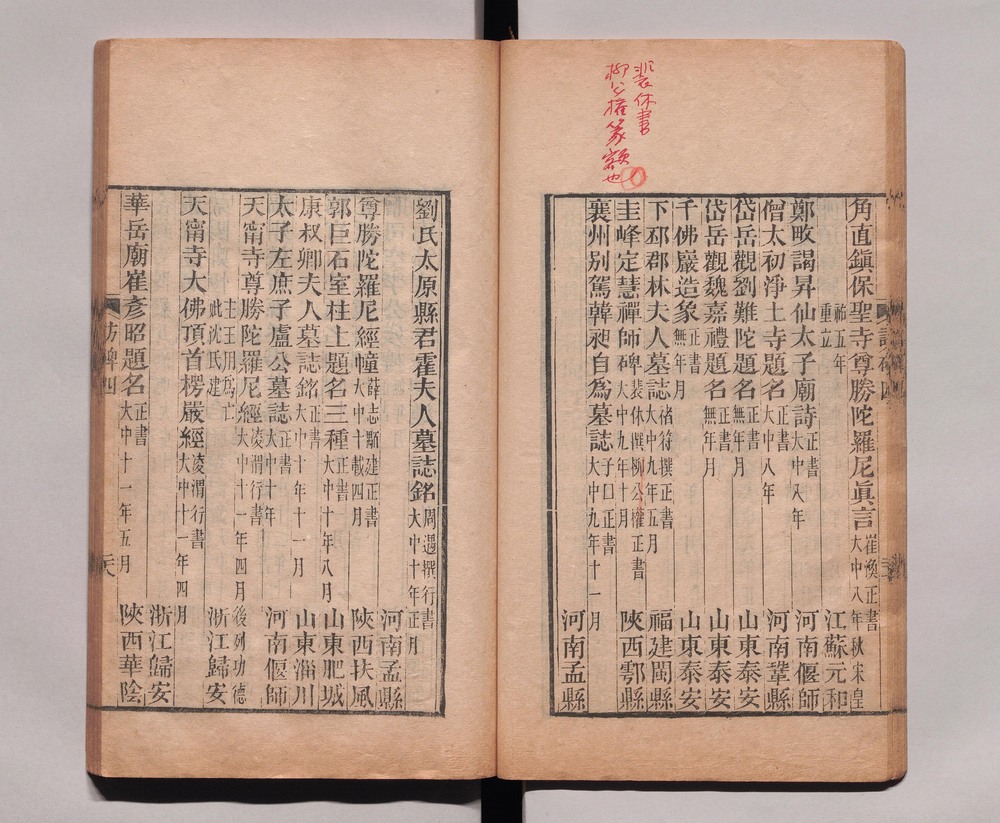 裴休書
柳公權篆額也
角直鎮保聖寺尊勝陀羅尼眞言崔渙正書大中八年秋宋皇
祐五年重立江蘇元和
鄭畋謁昇仙太子廟詩正書大中八年河南偃師
僧太初淨土寺題名正書大中八年河南鞏縣
岱岳觀劉難陀題名正書無年月山東泰安
岱岳觀魏嘉禮題名正書無年月山東泰安
千佛巖造象正書無年月山東泰安
下邳郡林夫人墓誌褚符撰正書大中九年五月福建閩縣
圭峰定慧禪師碑裴休撰柳公權正書大中九年十月陝西鄠縣
襄州别駕韓昶自爲墓誌子口正書大中九年十一月河南孟縣
劉氏太原縣君霍夫人墓誌銘周遇撰行書大中十年正月
河南孟縣
尊勝陀羅尼經幢薛志顒建正書大中十載四月陝西扶風
郭巨石室柱上題名三種正書大中十年八月山東肥城
康叔卿夫人墓誌銘正書大中十年十一月山東淄川
太子左庶子盧公墓誌正書大中十年河南偃師
天甯寺尊勝陀羅尼經淩渭行書大中十一年四月後列功德
主王用爲亡妣沈氏建浙江歸安
天甯寺大佛頂首楞嚴經淩渭行書大中十一年四月
浙江歸安
華岳廟崔彥昭題名正書大中十一年五月陝西華陰
訪碑四